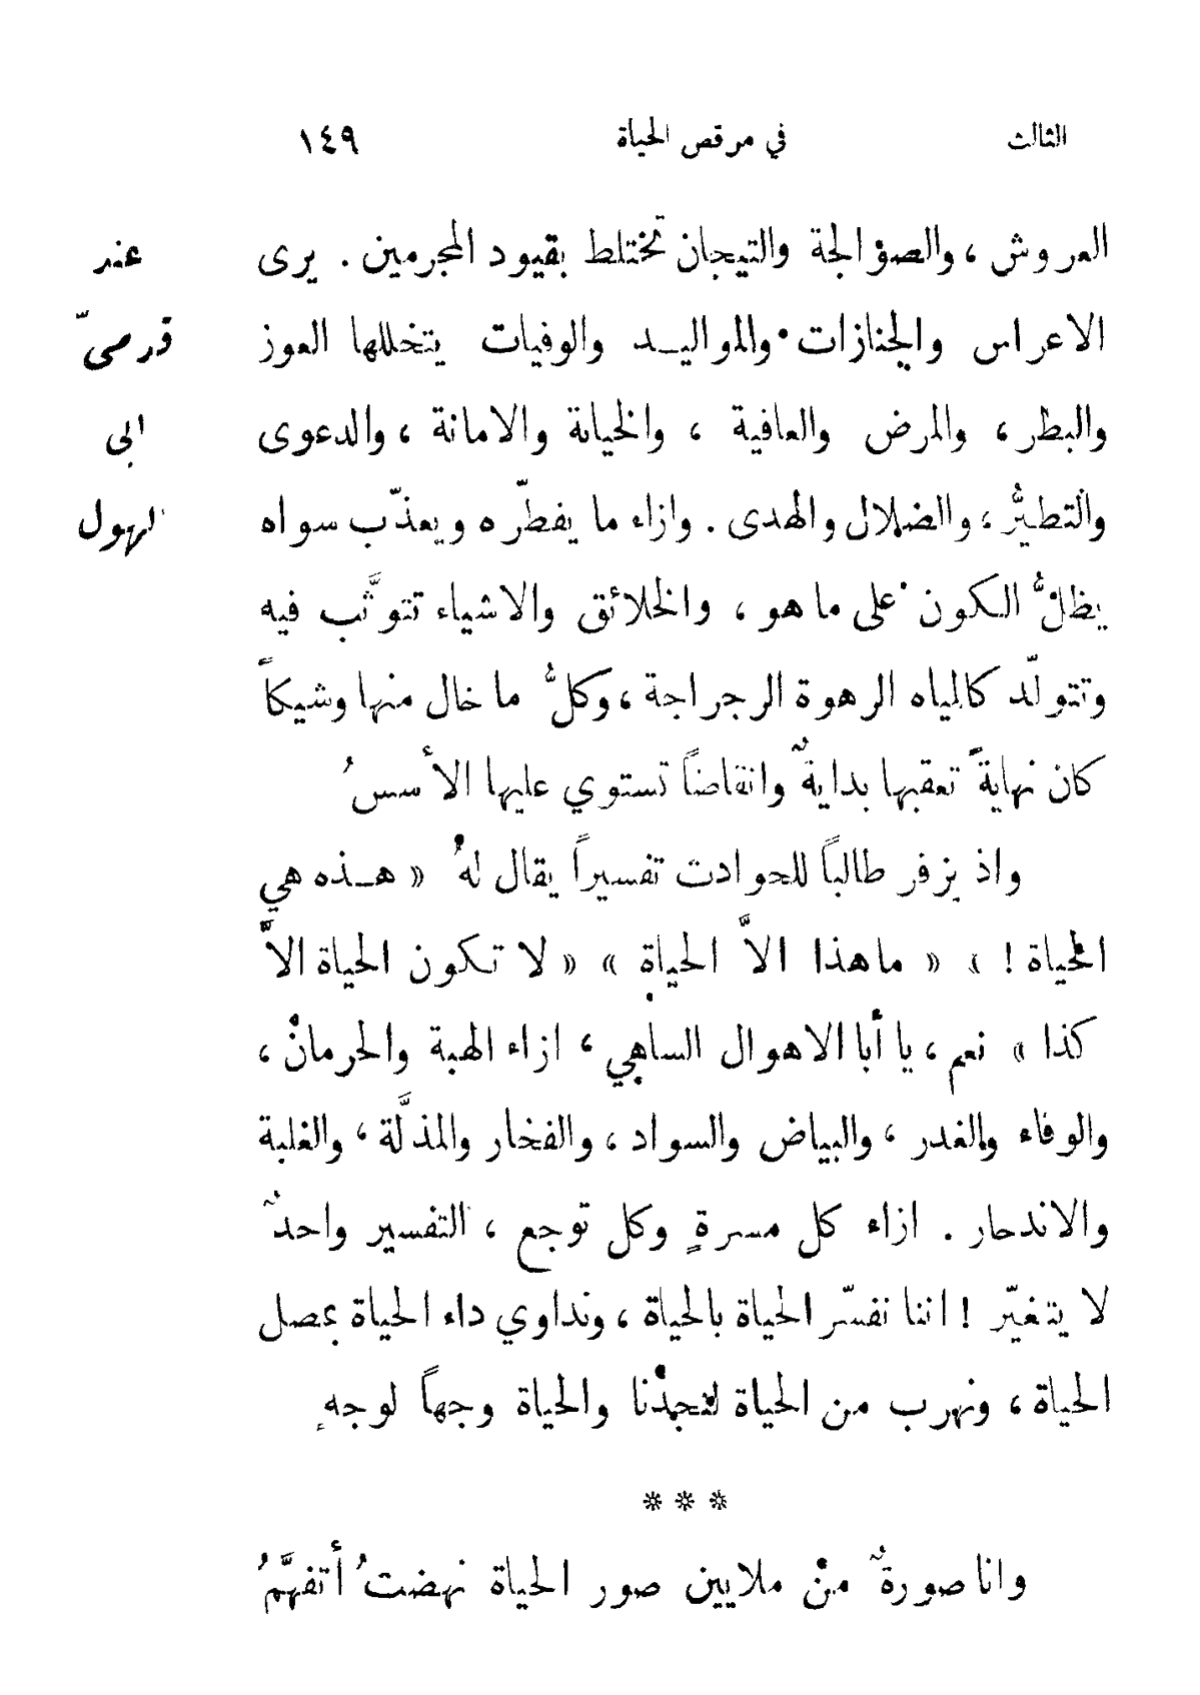 الثالث في مرقص الحياة ١٤٩
العروش ، والصؤالجة والتيجان تختلط بقيود المجرمين . يرى
الاعراس والجنازات والمواليد والوفيات يتخللها العوز
والبطر ، والمرض والعافية ، والخيانة والامانة ، والدعوى
والتطيُّر ، والضلال والهدى . وازاء ما يفطّره ويعذّب سواه
يظلُّ الكون على ما هو ، والخلائق والاشياء تتوثَّب فيه
وتتولّد كالمياه الرهوة الرجراجة ، وكلُّ ما خال منها وشيكاً
كان نهايةً تعقبها بدايةٌ وانقاضاً تستوي عليها الأسسُ
واذ يزفر طالباً للحوادث تفسيراً يقال لهُ « هـذه هي
الحياة ! » « ما هذا الاَّ الحياة » « لا تكون الحياة الاَّ
كذا » نعم ، يا أبا الاهوال الساهي ، ازاء الهبة والحرمان ،
والوفاء والغدر ، والبياض والسواد ، والفخار والمذلَّة ، والغلبة
والاندحار . ازاء كل مسرةٍ وكل توجع ، التفسير واحدٌ
لا يتغيّر ! اننا نفسّر الحياة بالحياة ، ونداوي داء الحياة بمصل
الحياة ، ونهرب من الحياة لتجدْنا والحياة وجهاً لوجهٍ
***
وانا صورةٌ منْ ملايين صور الحياة نهضتُ أتفهَّمُ
عند
قدميّ
ابي
الهول